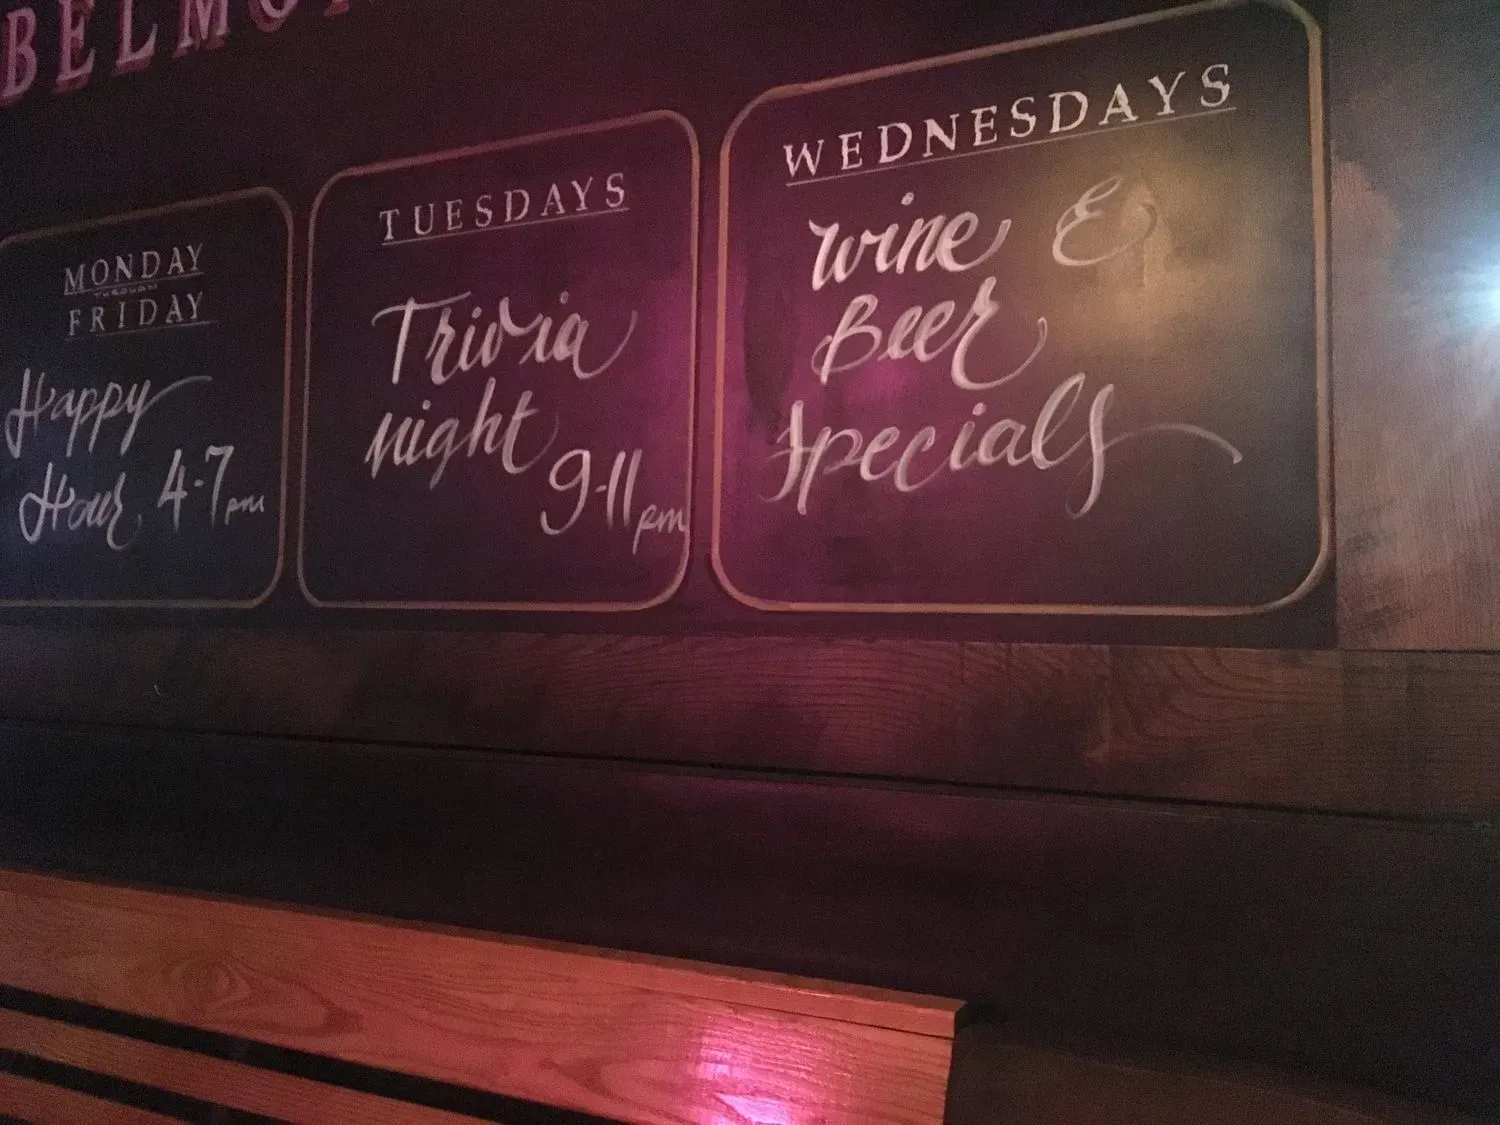 MONDAY
THROUGH
FRIDAY
Happy
Hour 4-7pm
TUESDAYS
Trivia
night
9-11pm
WEDNESDAYS
wine &
Beer
specials